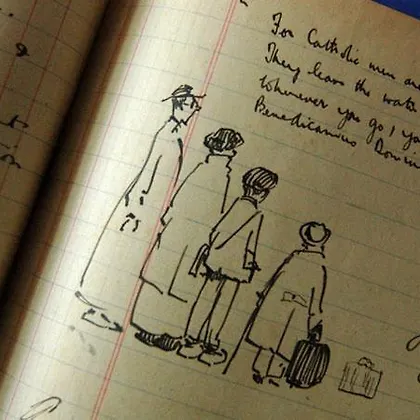 For Catholic men are
They leave the wate
Whenever you go, you
Benedicamus Domin